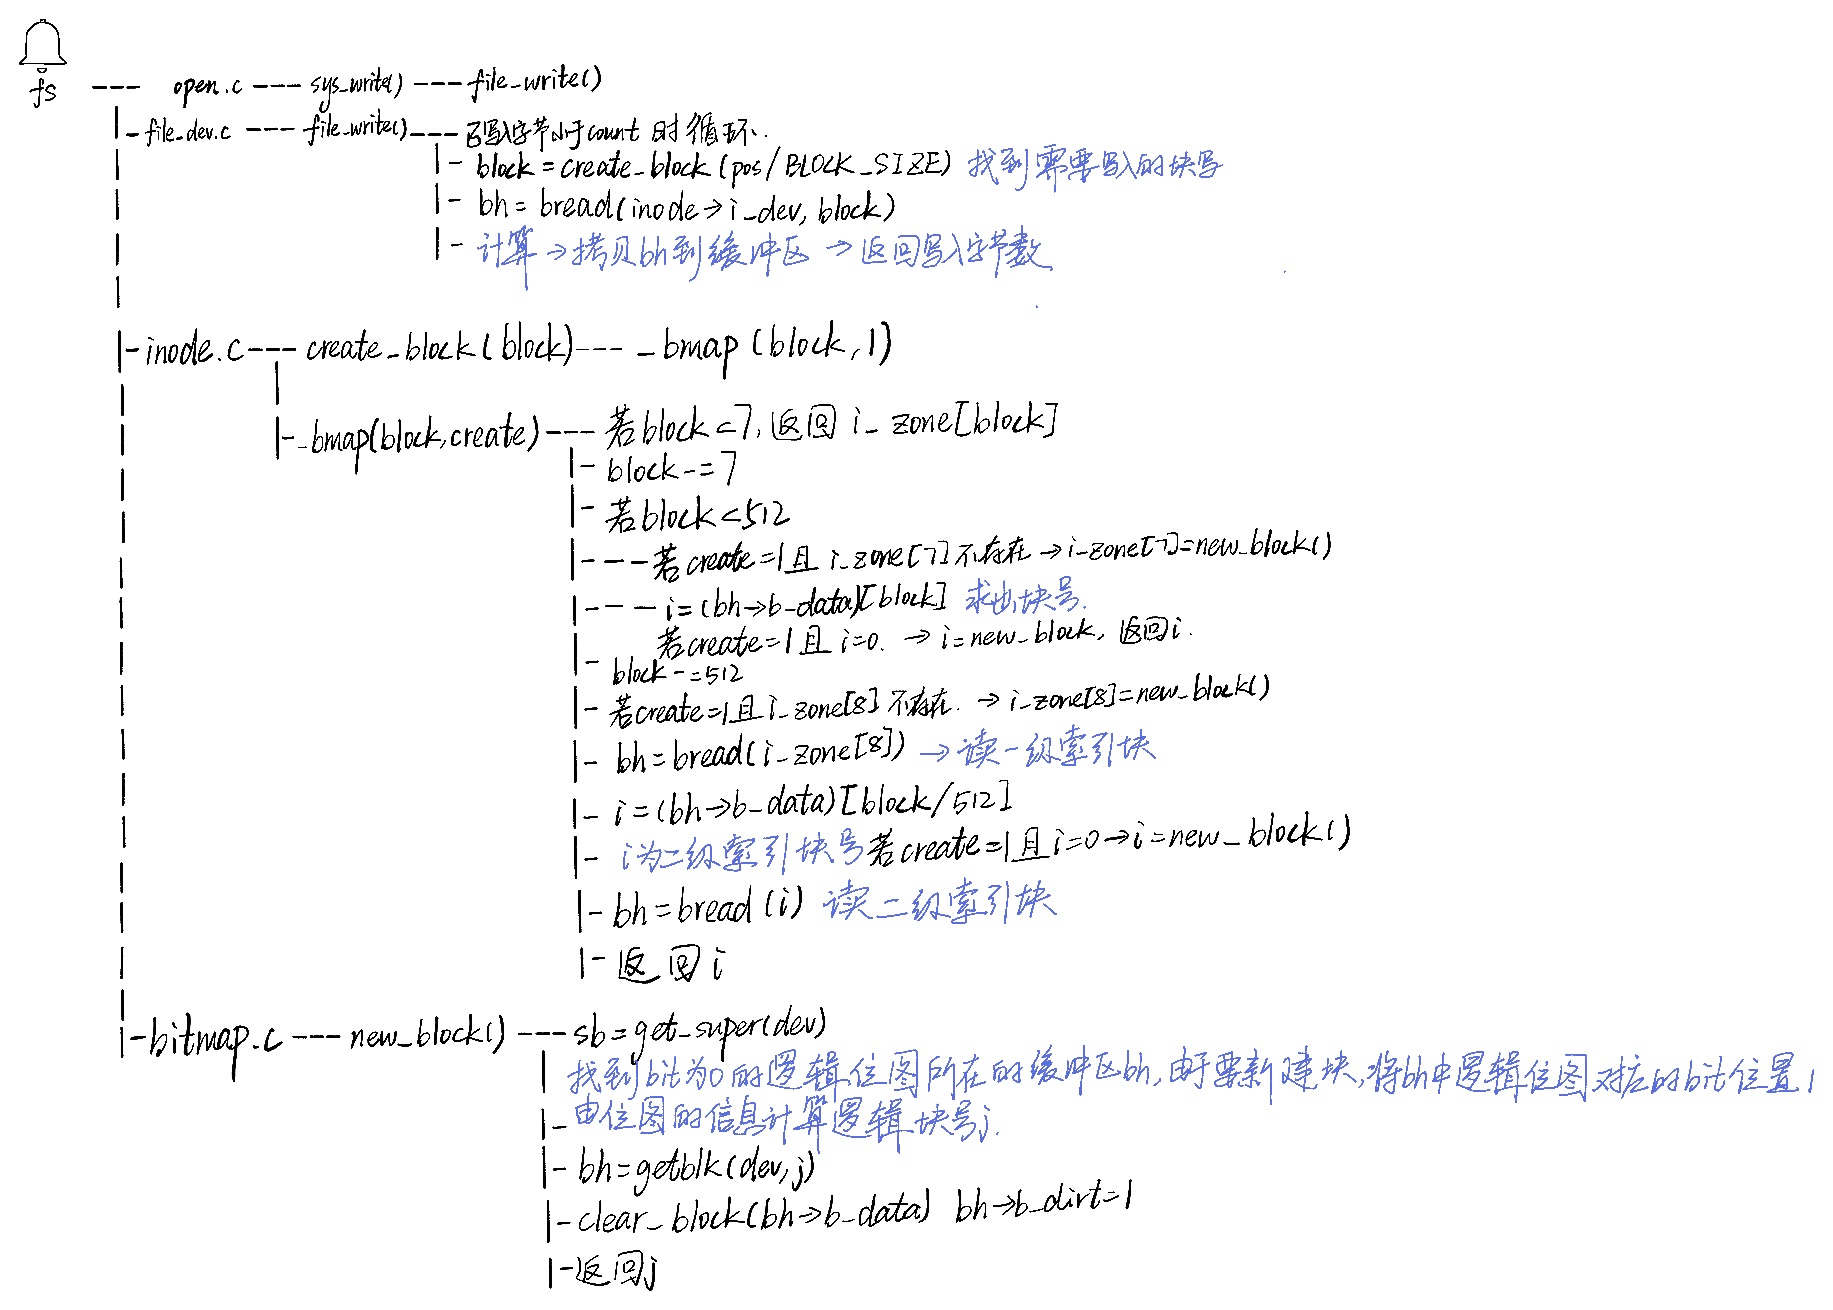 fs --- open.c --- sys_write() --- file_write()
|- file_dev.c --- file_write() --- 已写入字节小于count 时循环.
|- block = create_block (pos / BLOCK_SIZE) 找到需要写入的块号
|- bh = bread(inode→i_dev, block)
|- 计算→拷贝bh到缓冲区→返回写入字节数
|- inode.c --- create_block(block) --- _bmap (block, 1)
|- _bmap(block,create) --- 若block<7, 返回 i_zone[block]
|- block -= 7
|- 若block<512
|---- 若create=1且 i_zone[7] 不存在 → i_zone[7]=new_block()
|---- i=(bh→b_data)[block] 求出块号.
若create=1且 i=0. → i=new_block, 返回i.
|- block -= 512
|- 若create=1且i_zone[8] 不存在. → i_zone[8]=new_block()
|- bh=bread(i_zone[8]) →读一级索引块
|- i=(bh→b_data)[block/512]
|- i为二级索引块号 若create=1且i=0→i=new_block()
|- bh=bread(i) 读二级索引块
|- 返回 i
|- bitmap.c --- new_block() --- sb=get_super(dev)
找到bit为0的逻辑位图所在的缓冲区bh,由于要新建块,将bh中逻辑位图对应的bit位置1
|- 由位图的信息计算逻辑块号j.
|- bh=getblk(dev,j)
|- clear_block(bh→b_data) bh→b_dirt=1
|- 返回j